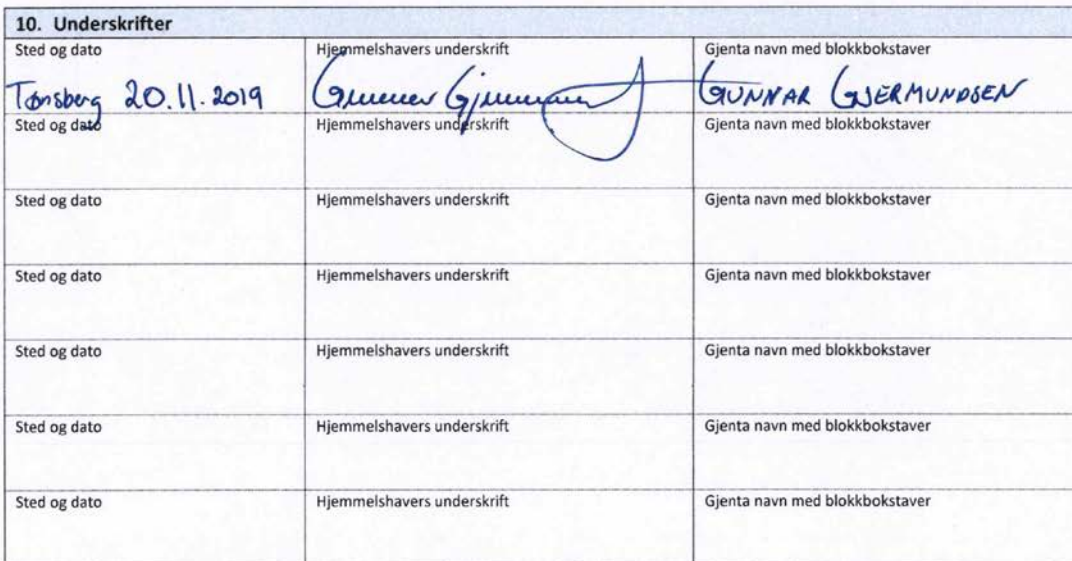 10. Underskrifter
Sted og dato Hjemmelshavers underskrift Gjenta navn med blokkbokstaver
Tønsberg 20.11.2019 Gunnar Gjermundsen GUNNAR GJERMUNDSEN
Sted og dato Hjemmelshavers underskrift Gjenta navn med blokkbokstaver
Sted og dato Hjemmelshavers underskrift Gjenta navn med blokkbokstaver
Sted og dato Hjemmelshavers underskrift Gjenta navn med blokkbokstaver
Sted og dato Hjemmelshavers underskrift Gjenta navn med blokkbokstaver
Sted og dato Hjemmelshavers underskrift Gjenta navn med blokkbokstaver
Sted og dato Hjemmelshavers underskrift Gjenta navn med blokkbokstaver